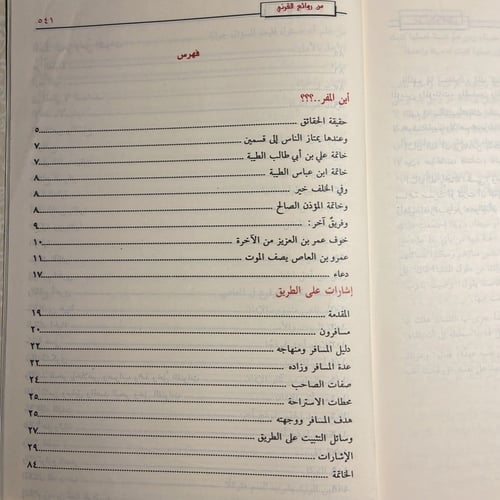 من روائع القرني
٥٤١
فهرس
أين المفر..؟؟؟
حقيقة الحقائق ٥
وعندها يمتاز الناس إلى قسمين ٧
خاتمة علي بن أبي طالب الطيبة ٧
خاتمة ابن عباس الطيبة ٨
وفي الخلف خير ٨
وخاتمة المؤذن الصالح ٨
وفريقٌ آخر: ٩
خوف عمر بن العزيز من الآخرة ١٠
عمرو بن العاص يصف الموت ١١
دعاء ١٧
إشارات على الطريق
المقدمة ١٩
مسافرون ٢٠
دليل المسافر ومنهاجه ٢٢
عدة المسافر وزاده ٢٢
صفات الصاحب ٢٤
محطات الاستراحة ٢٥
هدف المسافر ووجهته ٢٥
وسائل التثبيت على الطريق ٢٧
الإشارات ٢٩
الخاتمة ٨٤